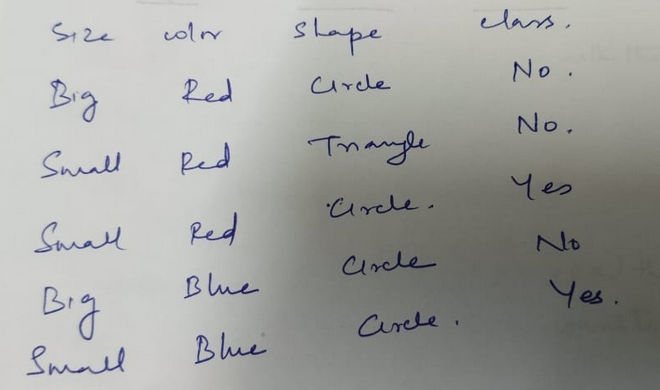 Size color shape class.
Big Red Circle No.
Small Red Triangle No.
Small Red Circle. Yes
Big Blue Circle No
Small Blue Circle. Yes.